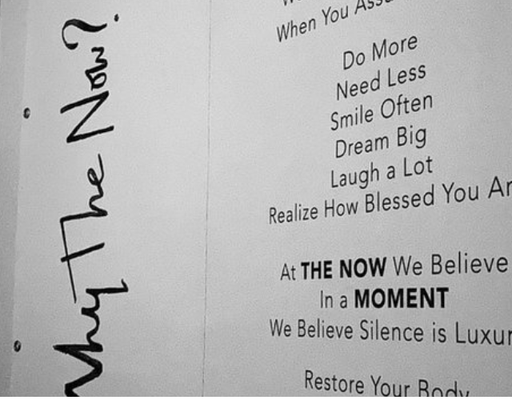 Why The Now?
When You
Do More
Need Less
Smile Often
Dream Big
Laugh a Lot
Realize How Blessed You
At THE NOW We Believe
In a MOMENT
We Believe Silence is
Restore Your Body